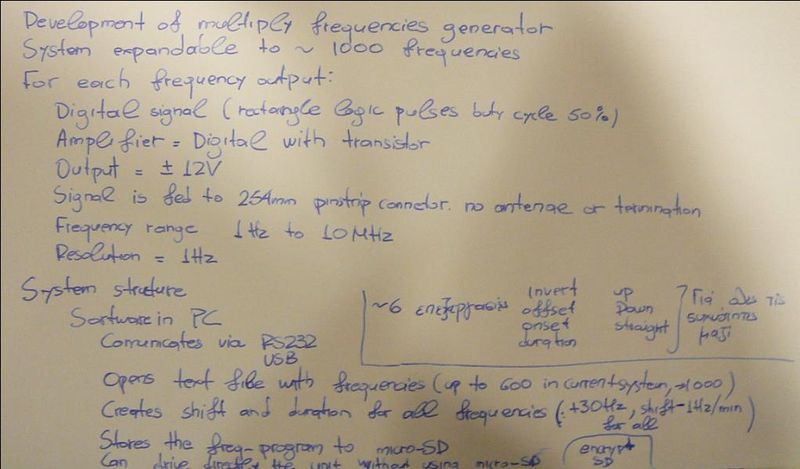 Development of multiply frequencies generator
System expandable to ~ 1000 frequencies
For each frequency output:
Digital signal (rectangle logic pulses duty cycle 50%)
Amplifier = Digital with transistor
Output = ± 12V
Signal is fed to 254mm pinstrip connetor. no antenae or termination
Frequency range 1Hz to 10MHz
Resolution = 1Hz
System structure
Software in PC
Comunicates via RS232
USB
~6 επεξεργασίες
invert
offset
onset
duration
up
Down
straight
Γιά όλες τις
συχνότητες
μαζί
Opens text file with frequencies (up to 600 in current system, →1000)
Creates shift and duration for all frequencies (: +30Hz, shift-1Hz/min)
for all
Stores the freq-program to micro-SD
Can drive directly the unit without using micro-SD
encrypt
SD